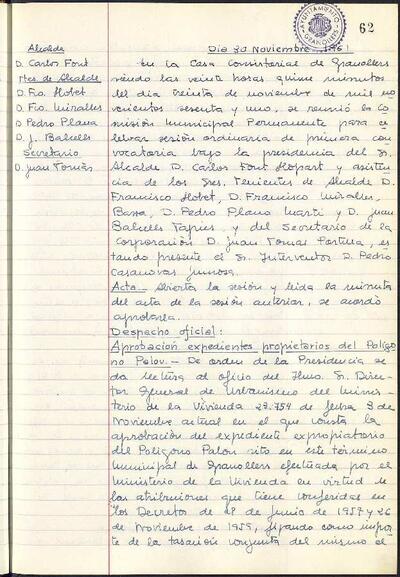 AYUNTAMIENTO
GRANOLLERS
62
Alcalde
D. Carlos Font
Ttes de Alcalde
D. Fco. Llobet
D. Fco. Miralles
D. Pedro Plana
D. J. Balcells
Secretario
D. Juan Tomás
Dia 30 Noviembre 1961
En la Casa Consistorial de Granollers
siendo las veinte horas quince minutos
del dia treinta de noviembre de mil no
vecientos sesenta y uno, se reunió la Co
misión Municipal Permanente para ce
lebrar sesión ordinaria de primera con
vocatoria bajo la presidencia del Sr.
Alcalde D. Carlos Font Llopart y asisten
cia de los Sres. Tenientes de Alcalde D.
Francisco Llobet, D. Francisco Miralles,
Bassa, D. Pedro Plana Martí y D. Juan
Balcells Tapies, y del Secretario de la
Corporación D. Juan Tomas Fortuna, es
tando presente el Sr. Interventor D. Pedro
Casanovas
Acta.- Abierta la sesión y leida la minuta
del acta de la sesión anterior, se acordó
aprobarla.
Despacho oficial:
Aprobación expedientes propietarios del Polígo
no Palou.- De orden de la Presidencia se
da lectura al oficio del Ilmo. Sr. Direc
tor General de Urbanismo del Minis
terio de la Vivienda 23.754 de fecha 3 de
Noviembre actual en el que consta la
aprobación del expediente expropiatorio
del Poligono Palou sito en este término
municipal de Granollers efectuada por el
Ministerio de la Vivienda en virtud de
las atribuciones que tiene conferidas en
los Decretos de de Junio de 1957 y 26
de Noviembre de 1959, fijando como impor
te de la tasación conjunta del mismo el